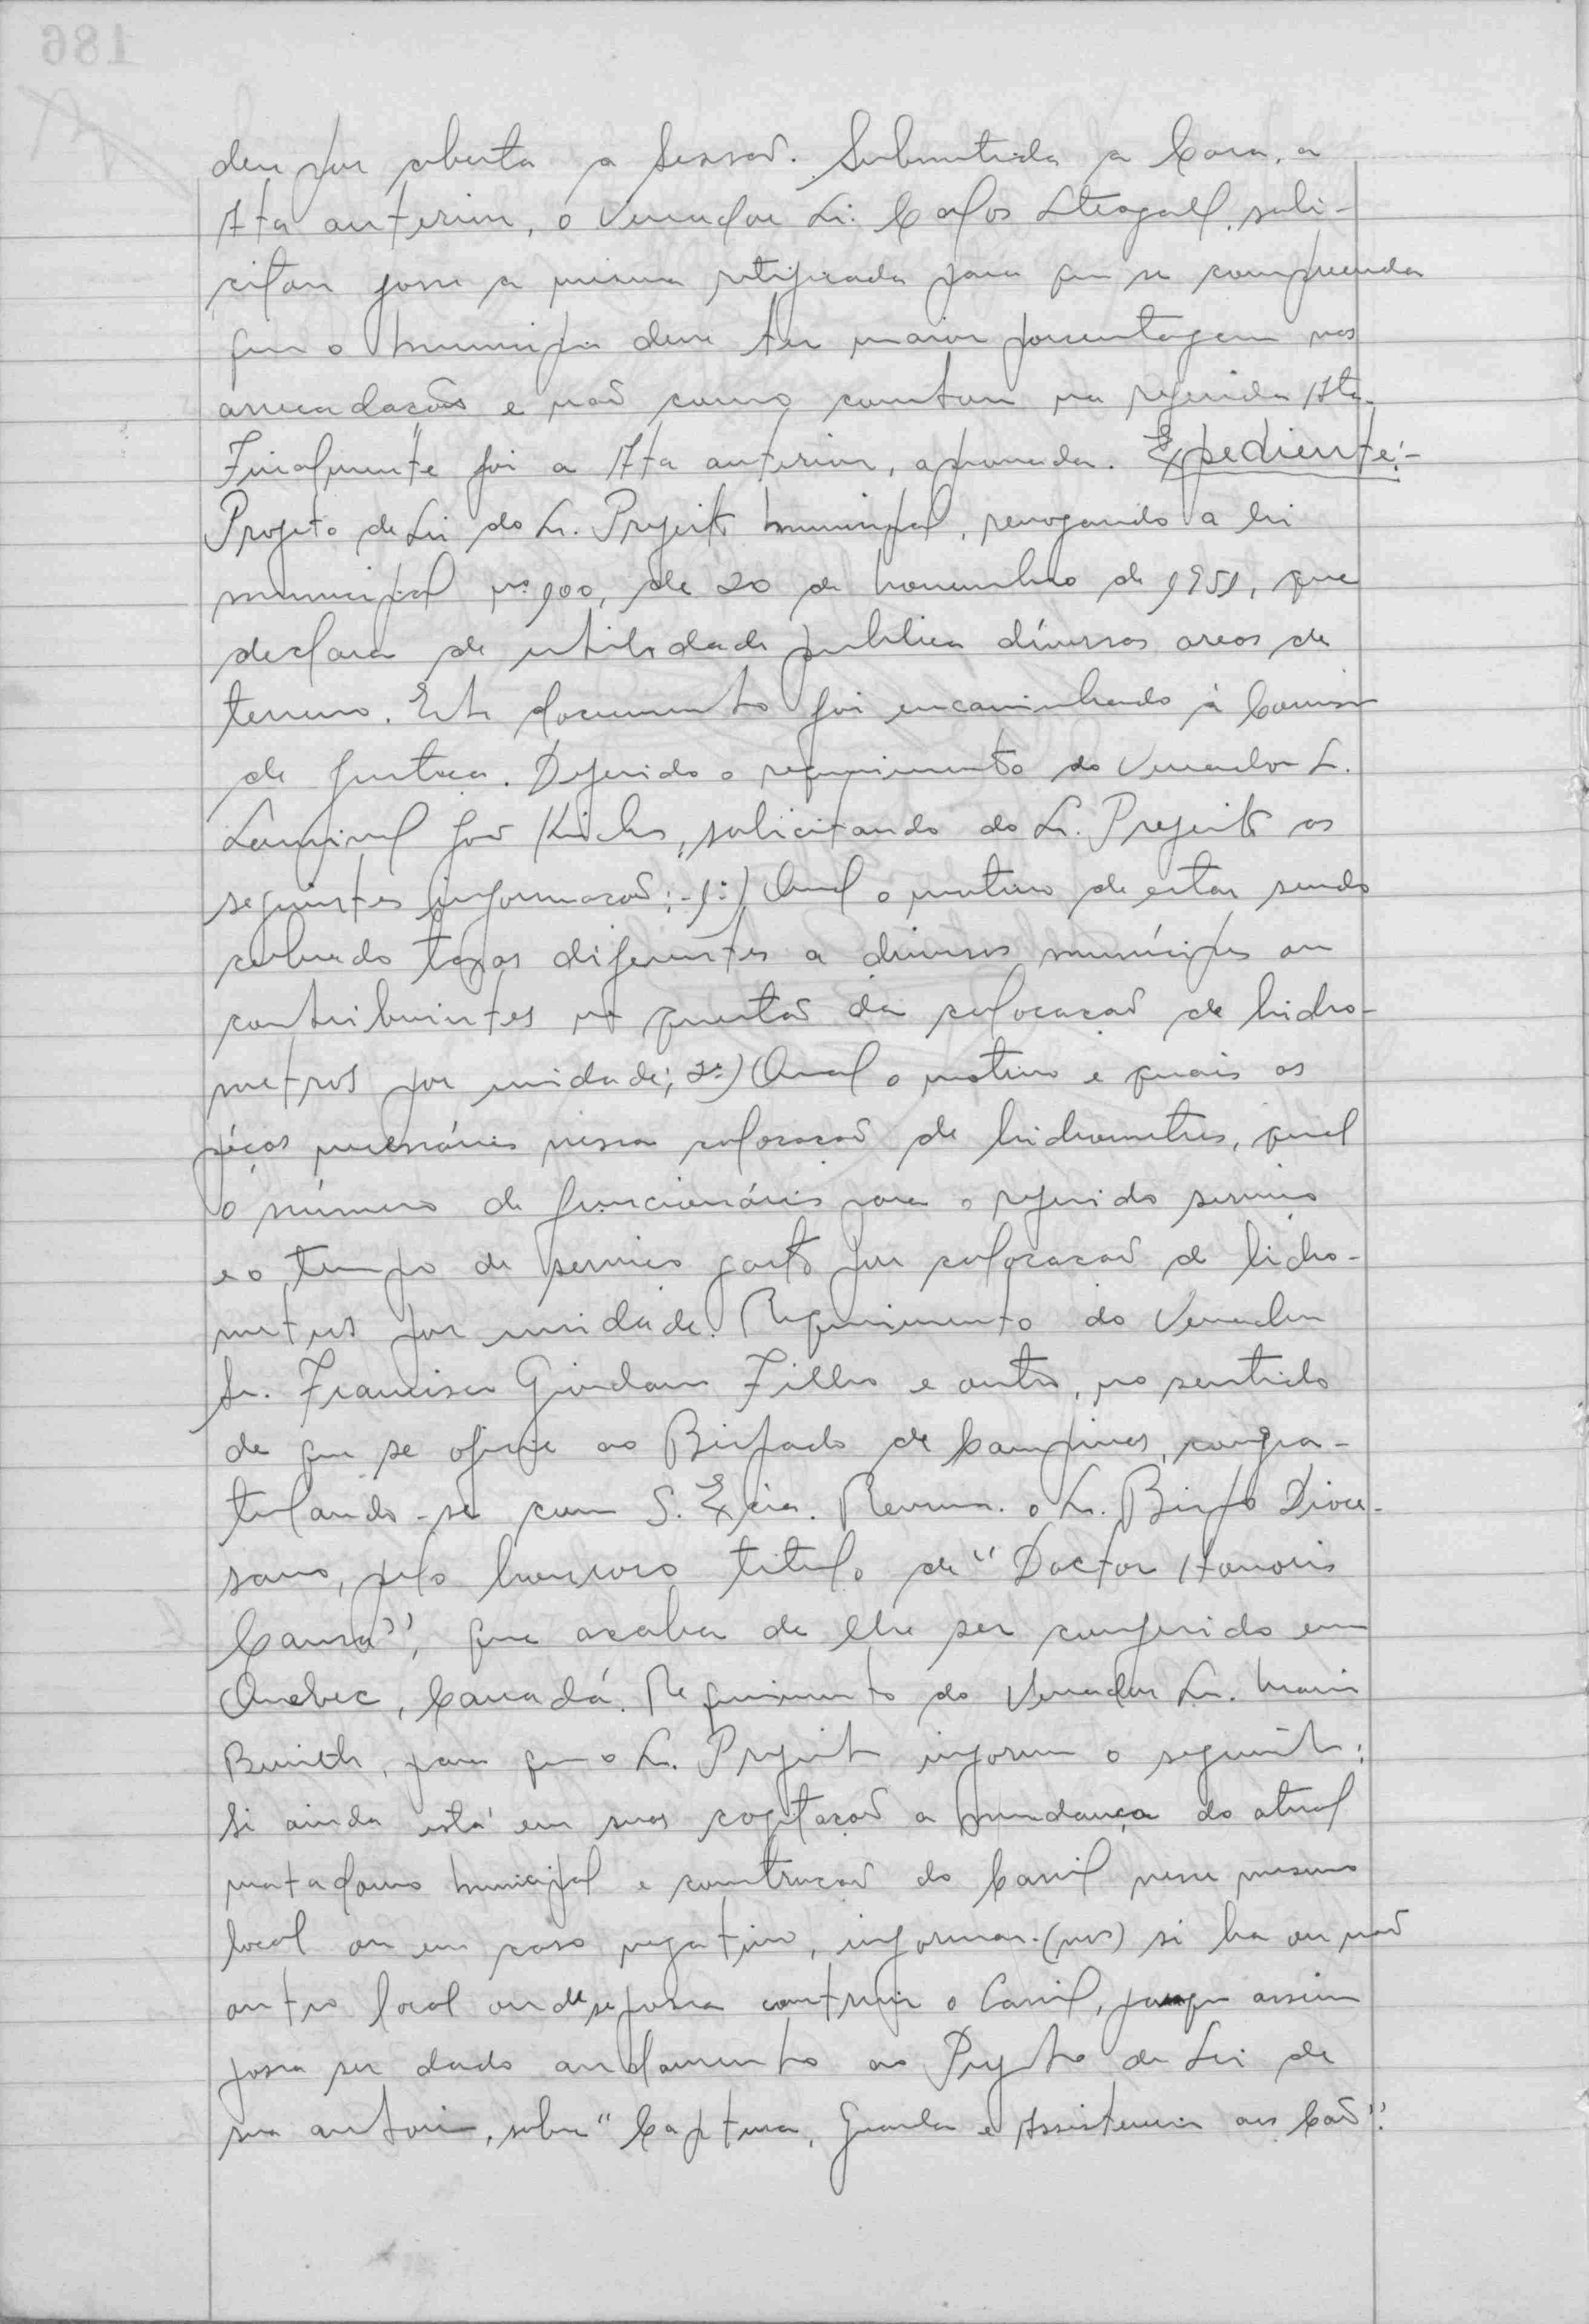 deu por aberta a Sessão. Submetida a Casa, a
Ata anterior, o Vereador Sr. Carlos Steagall, soli-
citou fosse a mesma retificada para que se compreenda
que o município deve ter maior porcentagem nas
arrecadações e não como constou na referida Ata.
Finalmente foi a Ata anterior, aprovada. Expediente:-
Projeto de Lei do Sr. Prefeito Municipal, revogando a lei
municipal nº 100, de 20 de novembro de 1951, que
declara de utilidade publica diversas areas de
terreno. Este documento foi encaminhado à Comissão
de Justiça. Deferido o requerimento do Vereador Sr.
João, solicitando do Sr. Prefeito as
seguintes informação:- 1º) Qual o motivo de estar sendo
cobrado taxas diferentes a diversos munícipes ou
contribuintes na questão da colocação de hidro-
metros por unidade; 2º) Qual o motivo e quais as
péças necessárias nessa colocação de hidrometros, qual
o número de funcionários para o referido serviço
e o tempo de serviço gasto por colocação de hidro-
metros por unidade. Requerimento do Vereador
Sr. Francisco Giordano Filho e outro, no sentido
de que se oficie ao Bispado de Campinas, congra-
tulando-se com S. Excia. Revma. o Sr. Bispo Dioce-
sano, pelo honroso titulo de "Doctor Honoris
Causa", que acaba de lhe ser conferido em
Quebec, Canadá. Requerimento do Vereador Sr. Mario
para que o Sr. Prefeito informe o seguinte:
Si ainda está em suas cogitação a mudança do atual
matadouro municipal e construção do Canil nesse mesmo
local ou em caso negativo, informar-(nos) si ha ou não
outro local onde se possa construir o Canil, para que assim
possa ser dado andamento ao Projeto de Lei de
sua autoria, sobre "Captura, Guarda e Assistencia aos Cão".
186